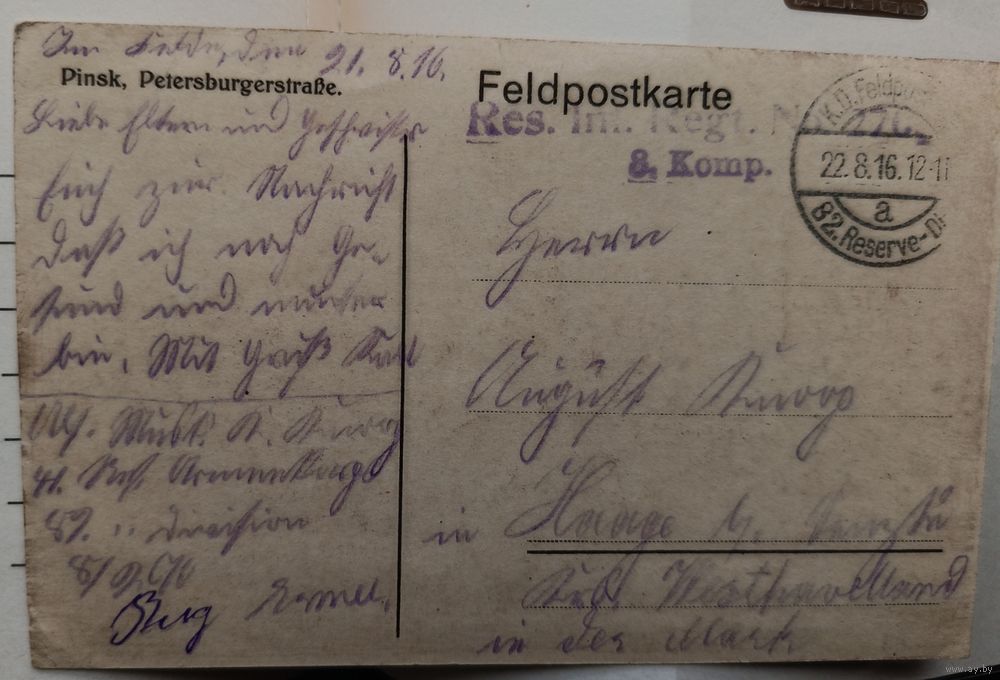 Im Felde, den 21. 8. 16.
Pinsk, Petersburgerstraße.
Liebe Eltern und Geschwister
Euch zur Nachricht
daß ich noch Ge-
sund und munter
bin. Mit Gruß Karl
Abs. Musk. K.
41. Res. Armeekorps
82. " Division
8/
Feldpostkarte
Res. Inf. Regt. No. 270.
8. Komp.
K.D. Feldpost
22.8.16. 12-1
a
82. Reserve-Di
Herrn
August
in Haage b.
Westhavelland
in der Mark
www.ay.by